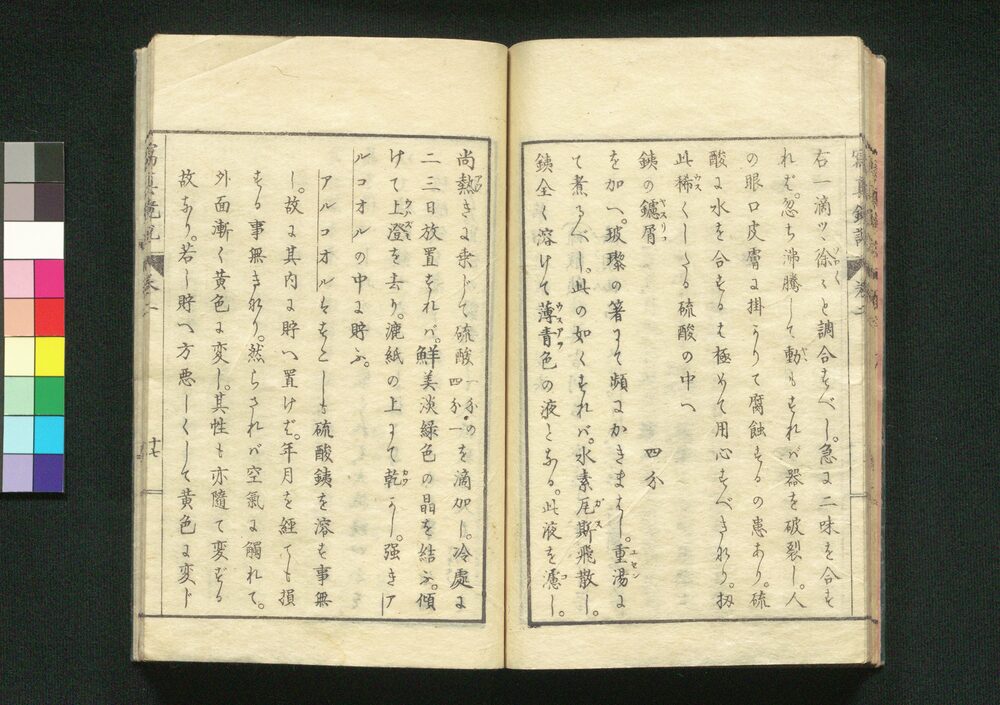 右一滴ツヽ徐々と調合すべし。急に二味を合す
れば。忽ち沸騰して動もすれバ器を破裂し。人
の眼口皮膚に掛りて腐蝕するの患あり。硫
酸に水を合するも極めて用心すべきなり。扨
此稀くしたる硫酸の中へ
銕の鑢屑 四分
を加へ。玻璨の箸にて頻にかきまはし。重湯に
て煮るべし。此の如くすれバ。水素瓦斯飛散し。
銕全く溶けて薄青色の液となる。此液を濾し。
尚熱きに乗じて硫酸一分の四分一を滴加し。冷處に
二三日放置すれバ。鮮美淡緑色の晶を結ふ。傾
けて上澄を去り。漉紙の上にて乾かし。強きア
ルコオルの中に貯ふ。
アルコオルはすこしも硫酸銕を溶す事無
し。故に其内に貯へ置けば。年月を經ても損
する事無きなり。然らされバ空氣に觸れて。
外面漸く黄色に変し。其性も亦隨て変ずる
故なり。若し貯へ方悪しくして黄色に変ト
寫真鏡説 巻二
十七